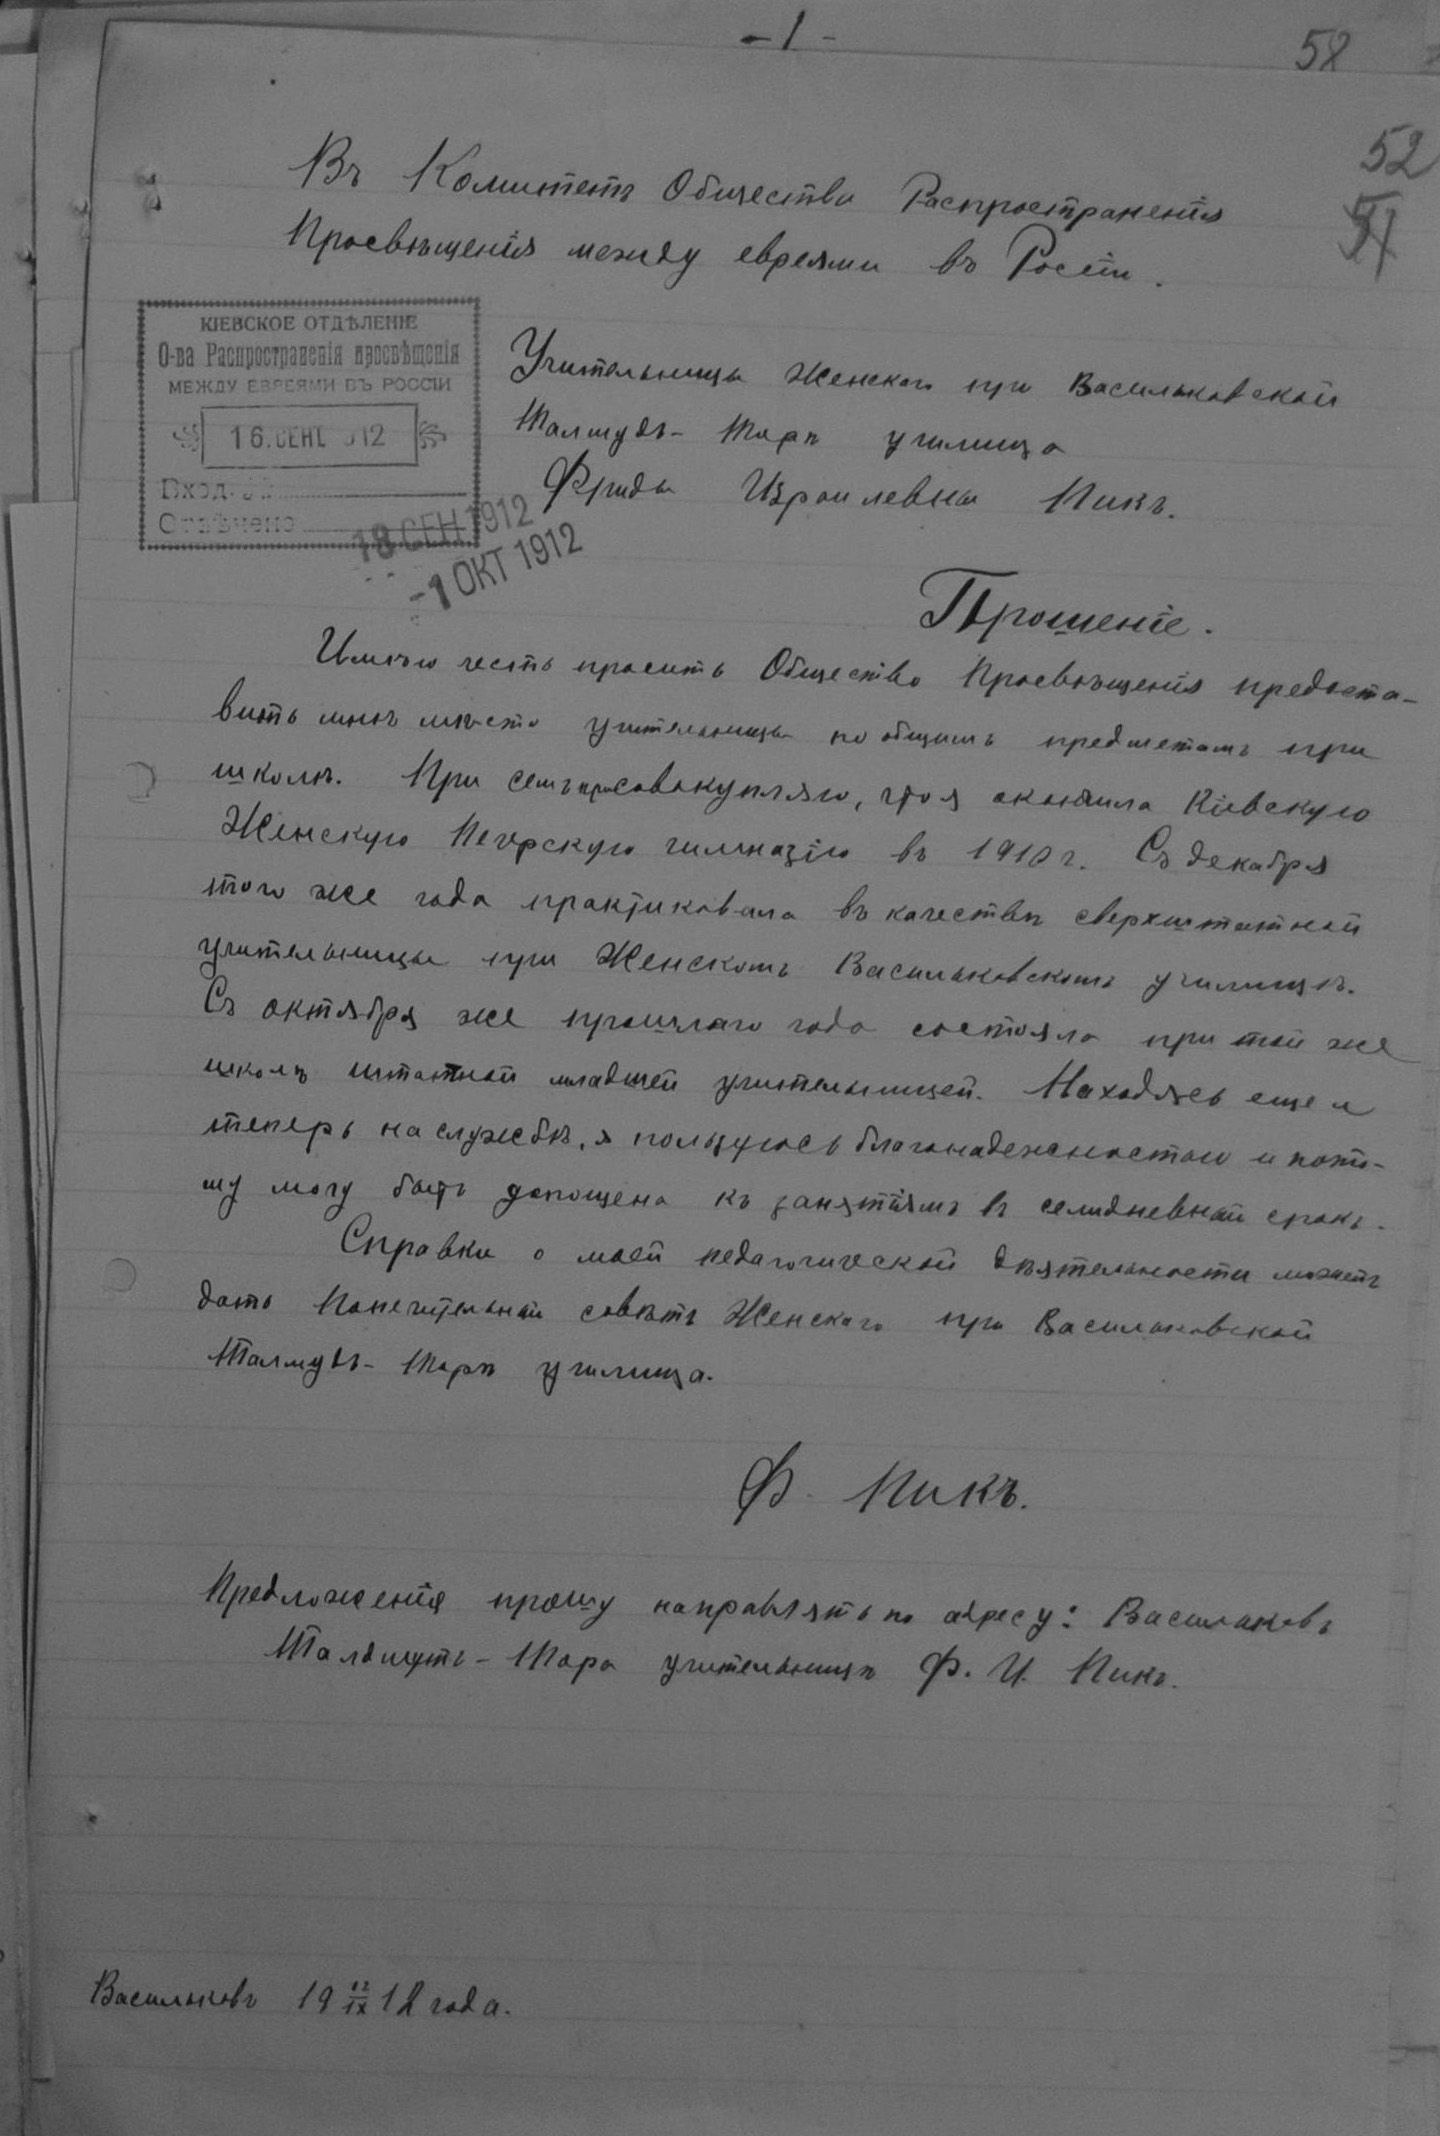 - 1 -
58
52
51
Въ Комитетъ Общества Распространенія
Просвѣщенія между евреями въ Россіи.
КІЕВСКОЕ ОТДѢЛЕНІЕ
О-ва Распространенія просвѣщенія
МЕЖДУ ЕВРЕЯМИ ВЪ РОССІИ
16. СЕНТ. 912
Вход. №
Отвѣчено
18 СЕН 1912
-1 ОКТ 1912
Учительницы Женскаго при Васильковской
Талмудъ-Торѣ училища
Фриды Израилевны Пикъ.
Прошеніе.
Имѣю честь просить Общество Просвѣщенія предоста-
вить мнѣ мѣсто учительницы по общимъ предметамъ при
школѣ. При семъ присовокупляю, что я окончила Кіевскую
Женскую Печерскую гимназію въ 1910 г. Съ декабря
того же года практиковала въ качествѣ сверхштатной
учительницы при Женскомъ Васильковскомъ училищѣ.
Съ октября же прошлаго года состояла при той же
школѣ штатной младшей учительницей. Находясь еще и
теперь на службѣ, я пользуюсь благонадежностью и пото-
му могу быть допущена къ занятіямъ въ семидневный срокъ.
Справки о моей педагогической дѣятельности можетъ
дать Попечительный совѣтъ Женскаго при Васильковской
Талмудъ-Торѣ училища.
Ф. Пикъ.
Предложенія прошу направлять по адресу: Васильковъ
Талдмутъ-Тора учительницѣ Ф. И. Пикъ.
Васильковъ 19 12/IX 12 года.